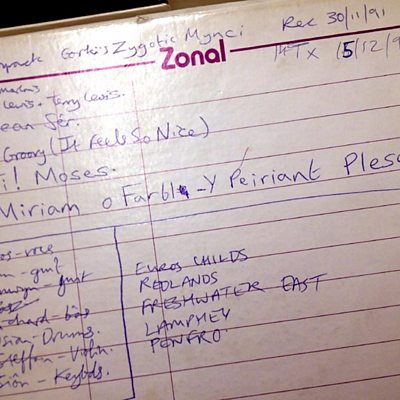 Gorki's Zygotic Mynci Rec 30/11/91
Zonal
1st Tx 15/12/9
Lewis + Terry Lewis.
ean Ser.
Groovy (It Feels So Nice)
i! Moses.
Miriam o Farbl - Y Peiriant Plese
- guit
- guit
- bas
- Drums.
Steffan - Violin.
Siôn - Keybds.
EUROS CHILDS
REDLANDS
FRESHWATER EAST
LAMPHEY
PENFRO